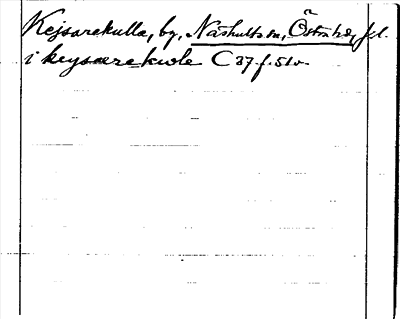 Kejsarekulla, by, Näshults sn, Östra hd, Jkl.
i keysærekwle C 37 f. 51v.